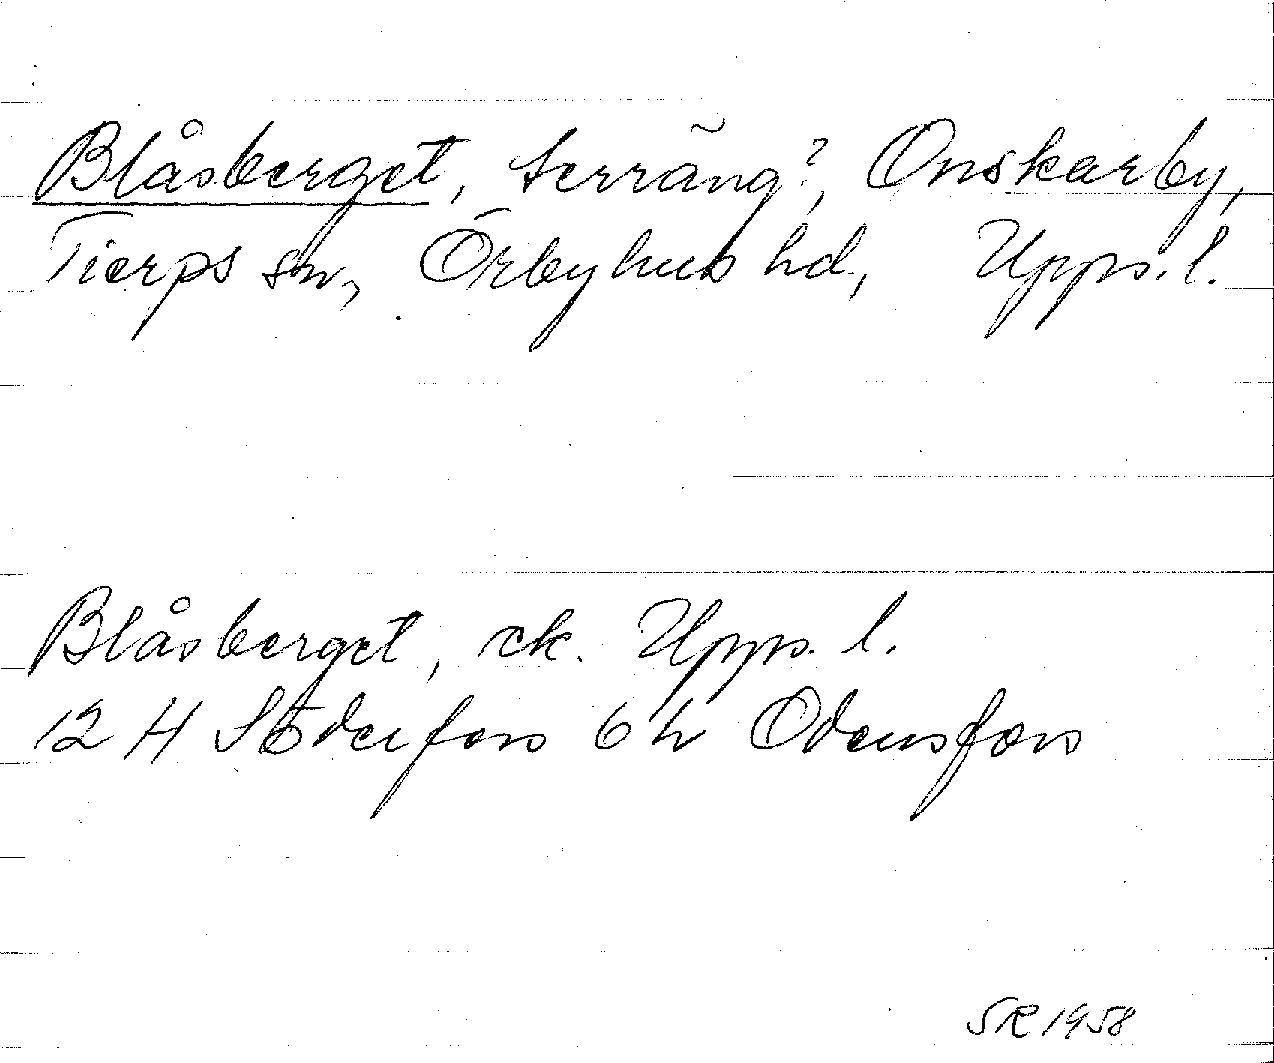 Blåsberget, terräng?, Onskarby,
Tierps sn, Örbyhus hd, Upps. l.
Blåsberget, ek. Upps. l.
12 H Söderfors 6 h Odensfors
SR 1958